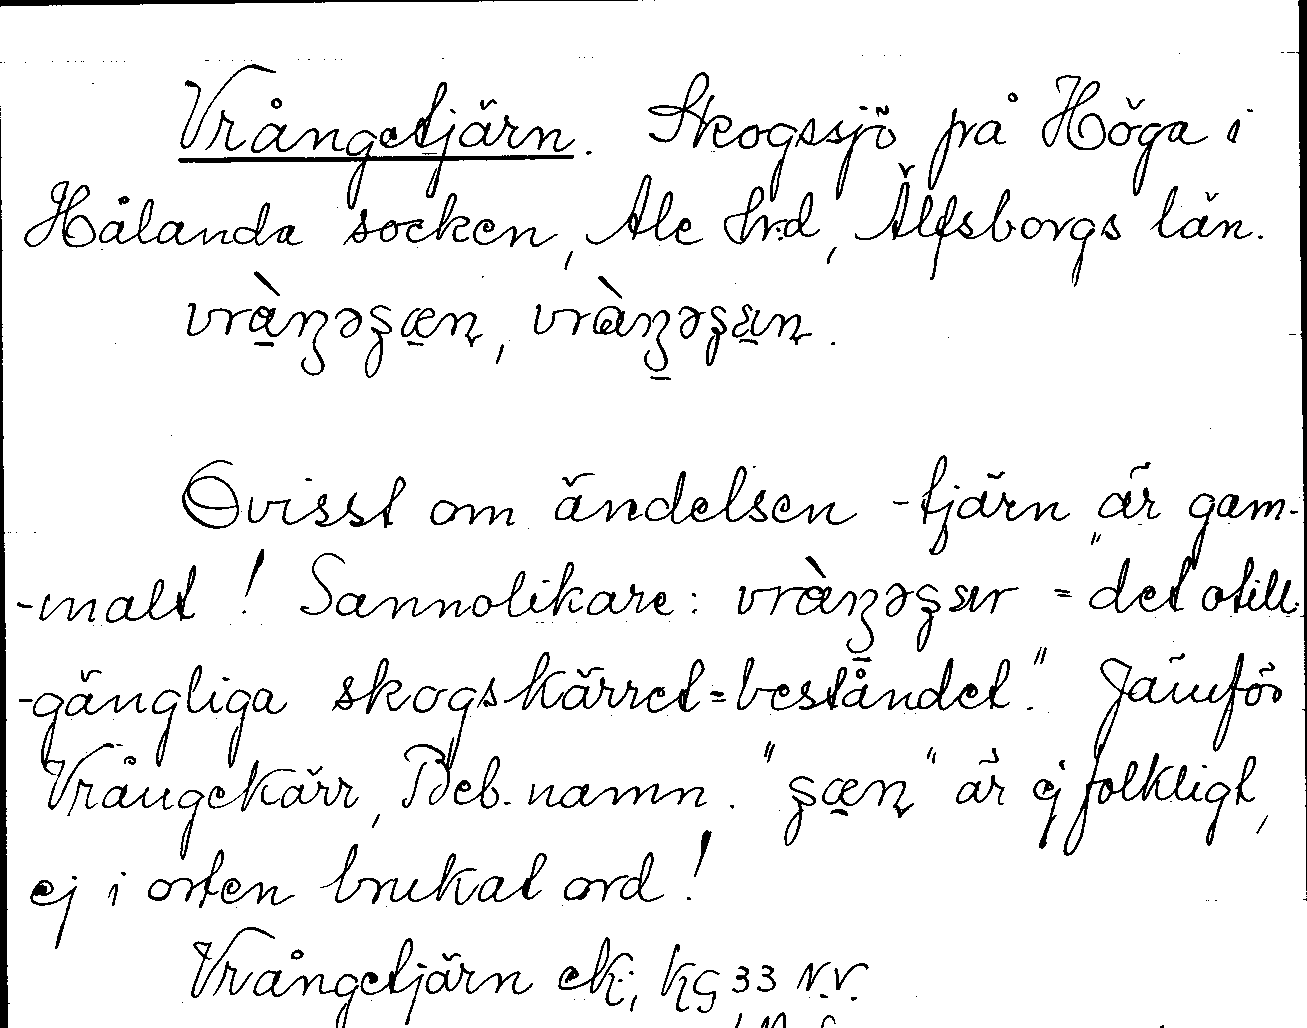 Vrångetjärn. Skogssjö på Höga i
Hålanda socken, Ale hrd, Älfsborgs län.
vràŋəʂæn, vràŋəʂan.
Ovisst om ändelsen -tjärn är gam-
-malt! Sannolikare: vràŋəʂar = "det otill-
-gängliga skogskärret=beståndet." Jämför
Vrångekärr, Beb. namn. "ʂæn" är ej folkligt,
ej i orten brukat ord!
Vrångetjärn ek., KG 33 N.V.